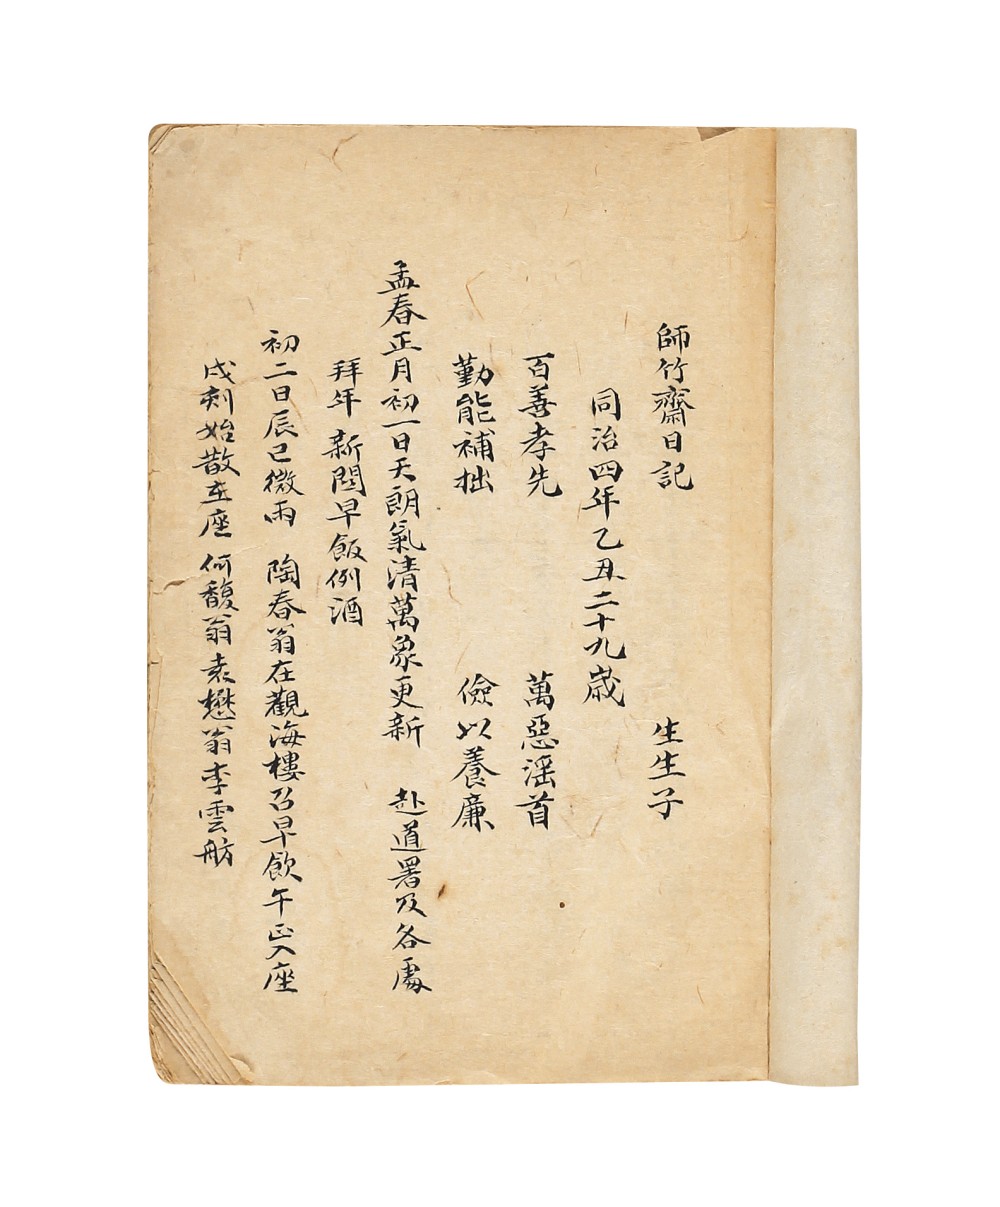 師竹齋日記 生生子
同治四年乙丑二十九歲
百善孝先 萬惡滛首
勤能補拙 儉以養廉
孟春正月初一日天朗氣清萬象更新 赴道署及各處
拜年 新関早飯例酒
初二日辰巳微雨 陶春翁在觀海樓召早飲午正入座
戌刻始散在座何馥翁袁懋翁李雲舫